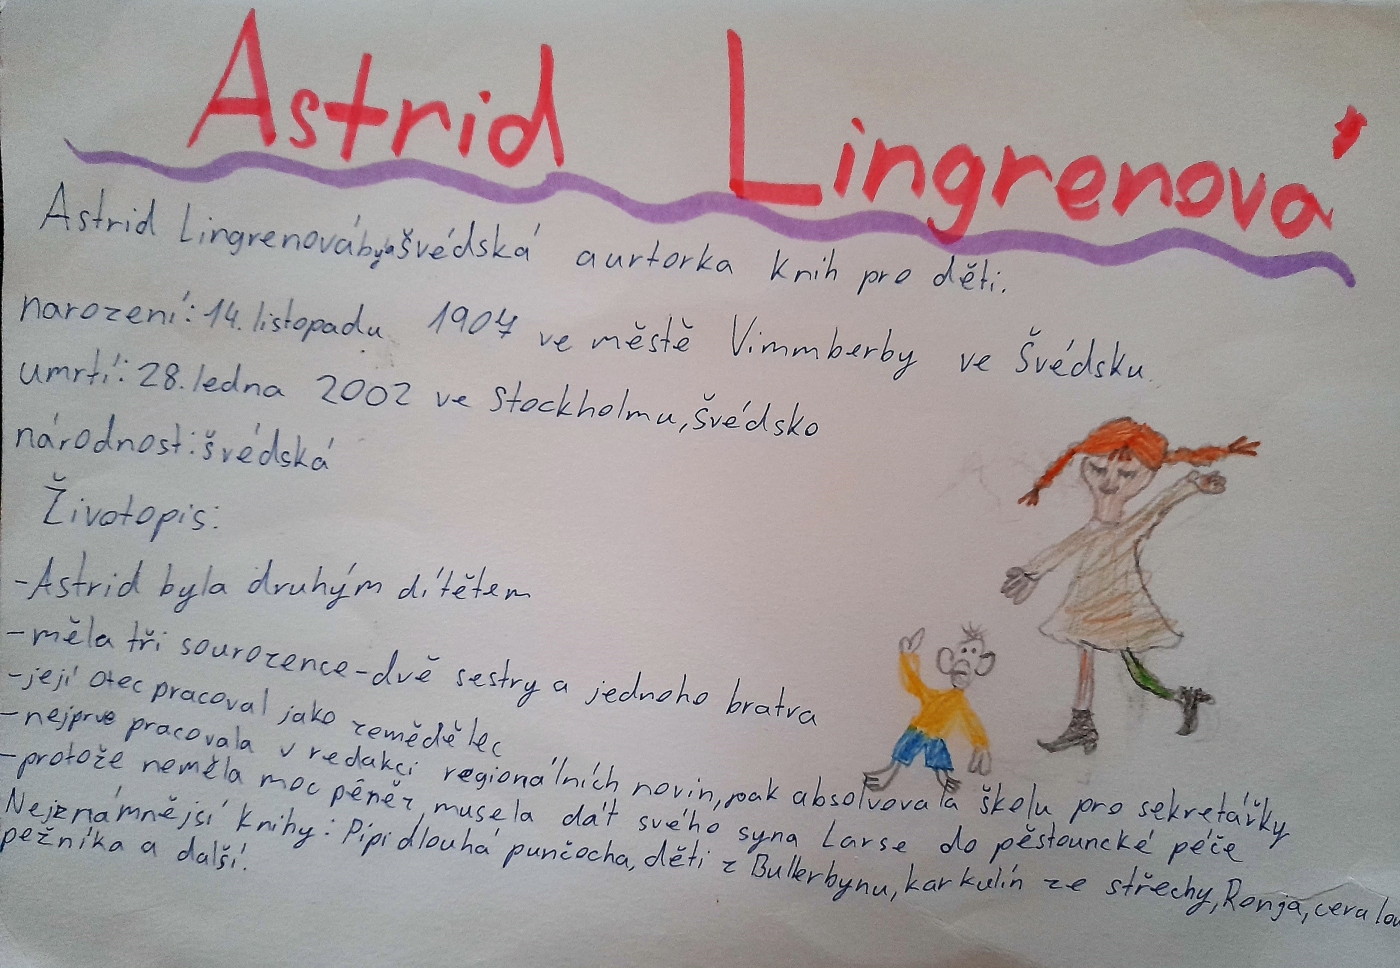 Astrid Lingrenová
Astrid Lingrenová byla švédská aurtorka knih pro děti.
narození: 14. listopadu 1907 ve městě Vimmberby ve Švédsku.
umrtí: 28. ledna 2002 ve Stockholmu, švédsko
národnost: švédská
Životopis:
-Astrid byla druhým dítětem
-měla tři sourozence-dvě sestry a jednoho bratra
-její otec pracoval jako zemědělec
-nejprve pracovala v redakci regionálních novin, pak absolvovala školu pro sekretářky
-protože neměla moc pěněz musela dát svého syna Larse do pěstouncké péče
Nejznámnější knihy: Pipi dlouhá punčocha, děti z Bullerbynu, karkulín ze střechy, Ronja, cera lou
pežníka a další.